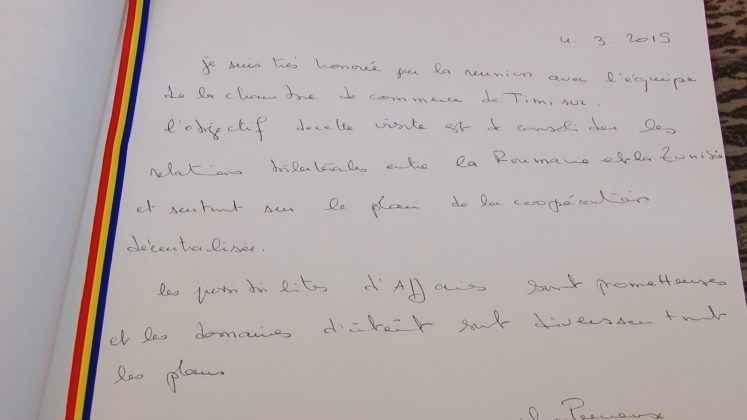 4. 3. 2019
je suis très honorée par la reunion avec l'équipe
de la chambre de commerce de Timisur.
l'objectif de cette visite est de consolider les
relations bilatérales entre la Roumanie et la Tunisie
et surtout sur le plan de la coopération
décentralisée.
les possibilités d'Affaires sont prometteuses
et les domaines d'intêret sont divers sur tout
les plans.